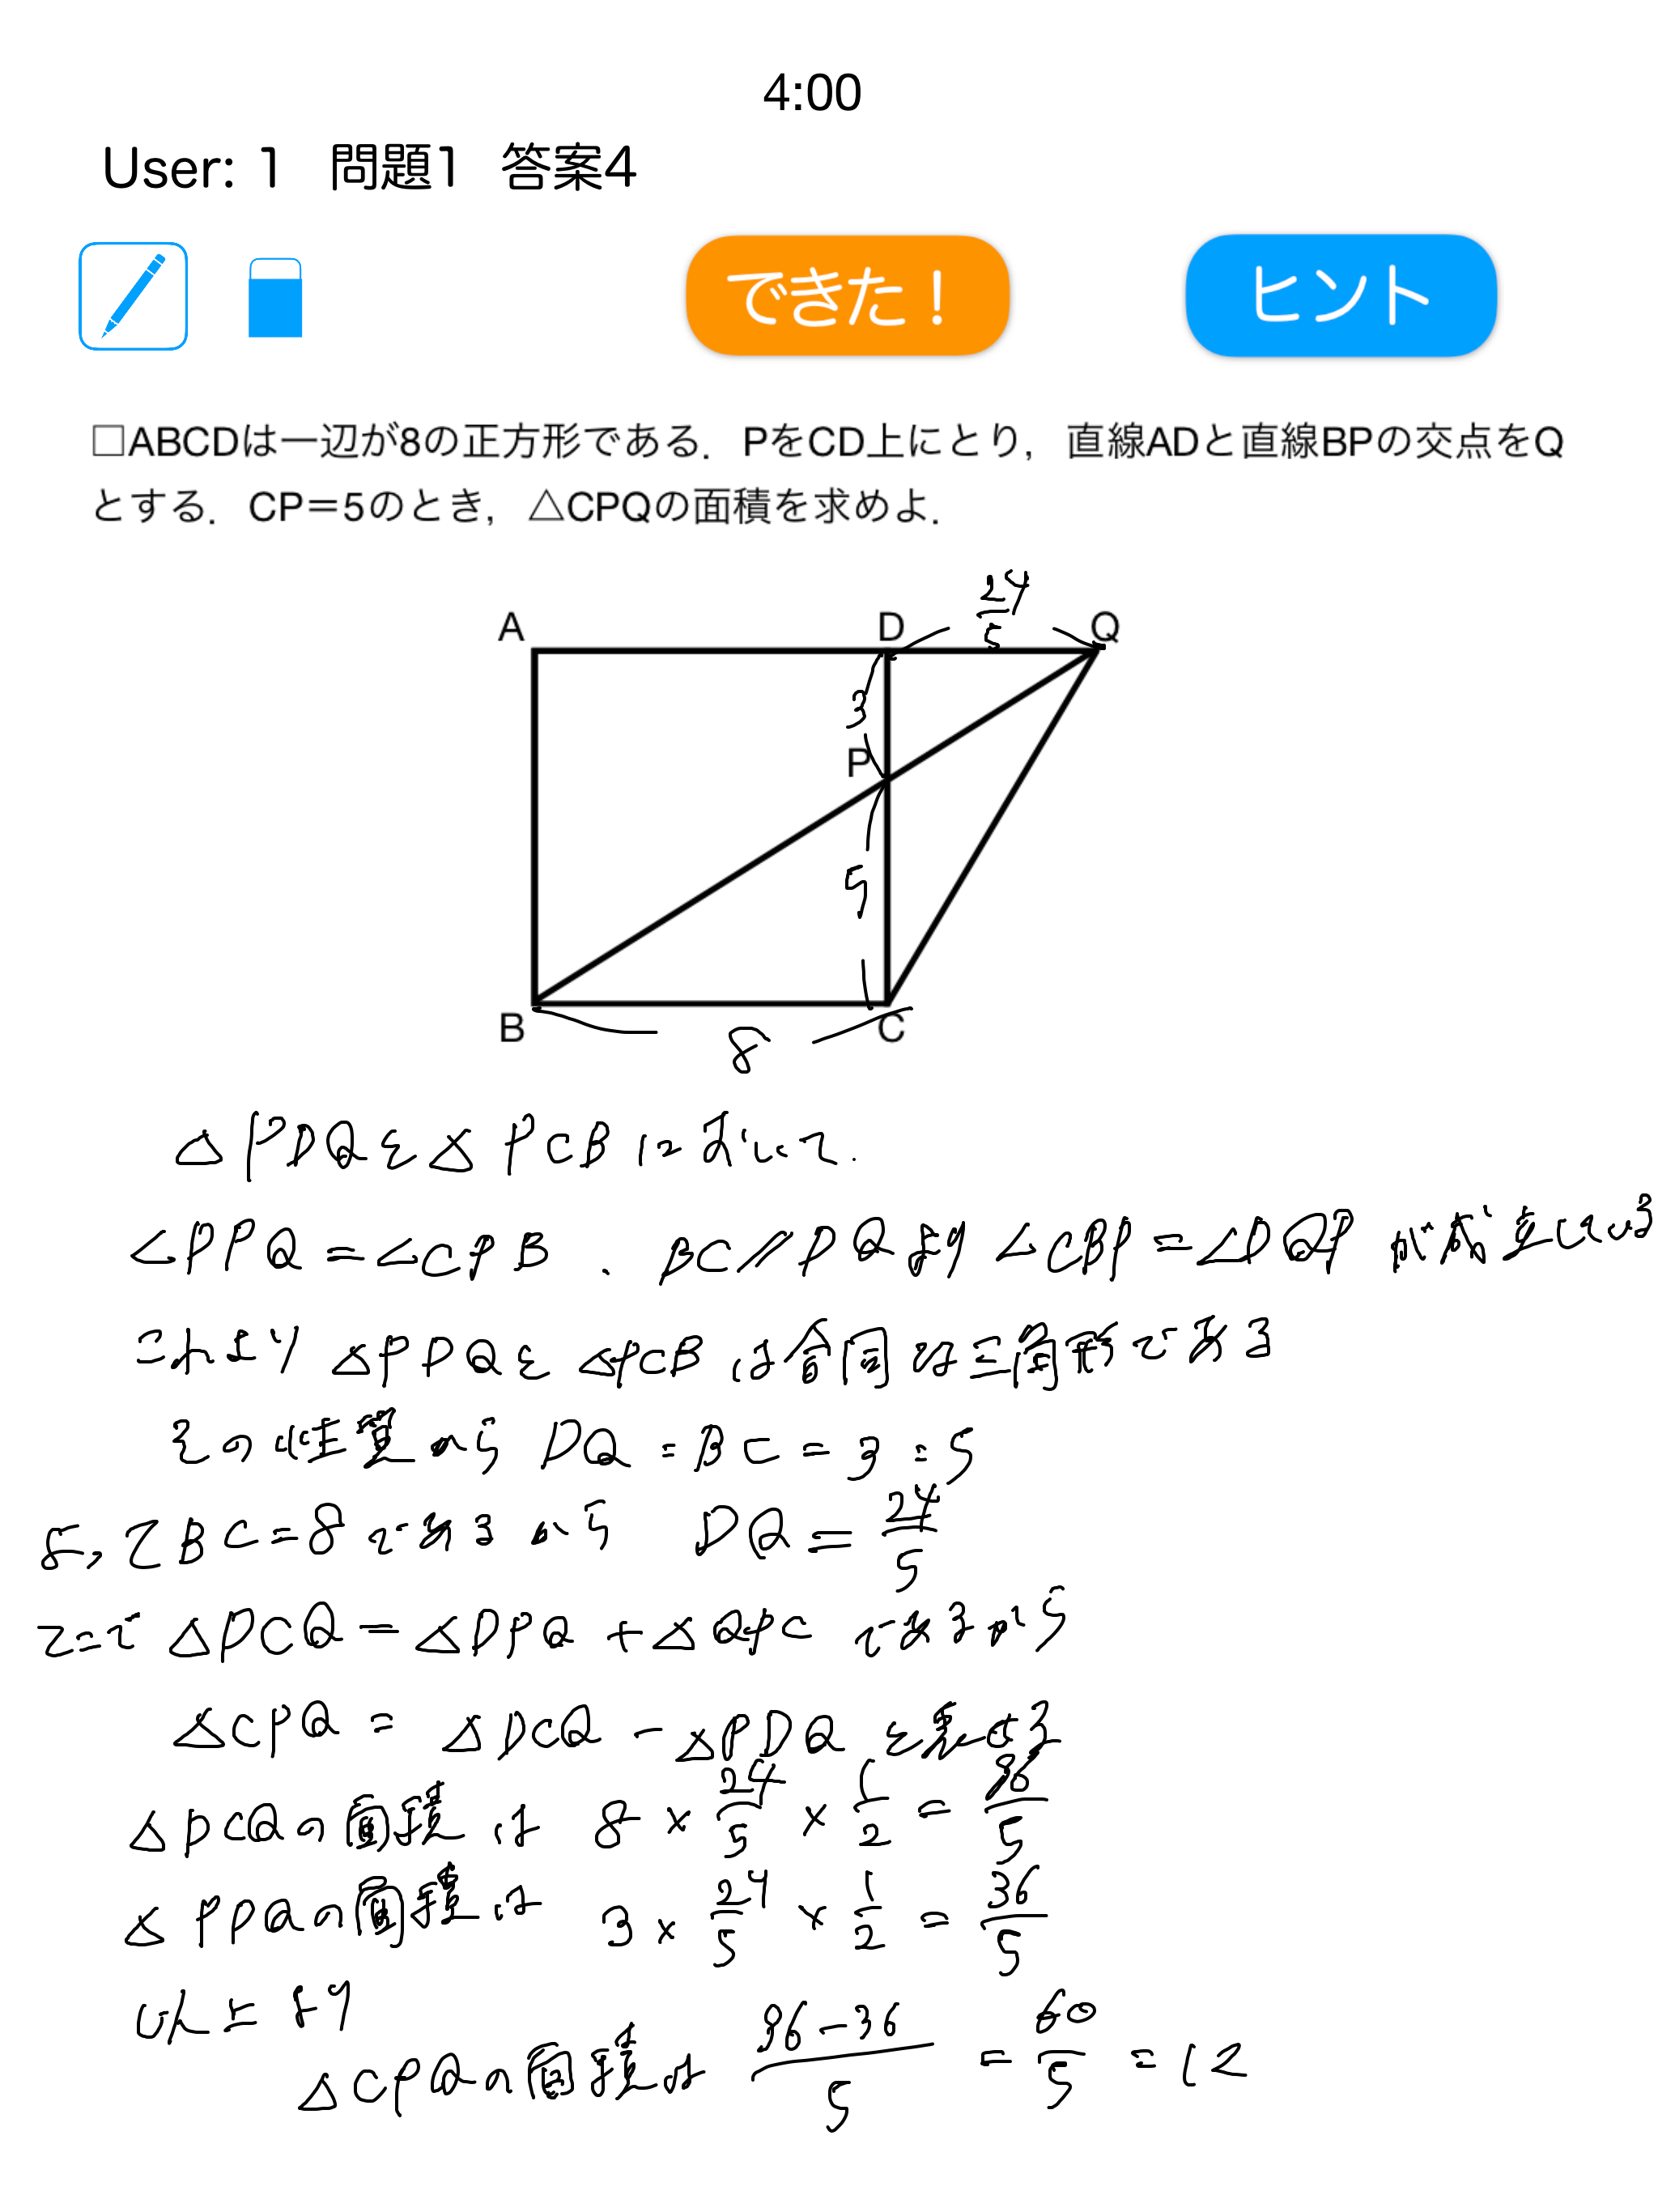 4:00
User: 1 問題1 答案4
できた！ ヒント
□ABCDは一辺が8の正方形である．PをCD上にとり，直線ADと直線BPの交点をQ
とする．CP＝5のとき，△CPQの面積を求めよ．
24/5
A D Q
3
P
5
B C
8
△PDQと△PCBにおいて.
∠PPQ=∠CPB . BC//DQより∠CBP=∠DQPが成立している
これより △PDQと△PCBは合同な三角形である
その性質から DQ:BC=3:5
よってBC=8であるから DQ=24/5
ここで △DCQ=△DPQ+△QPC であるから
△CPQ = △DCQ-△PDQ と表せる
△DCQの面積は 8×24/5×1/2=96/5
△PDQの面積は 3×24/5×1/2=36/5
以上より
△CPQの面積は (96-36)/5 = 60/5 = 12